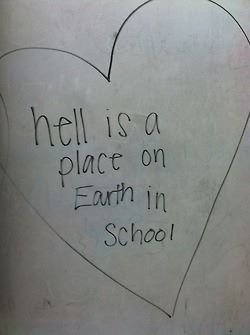 hell is a
place on
Earth in
School